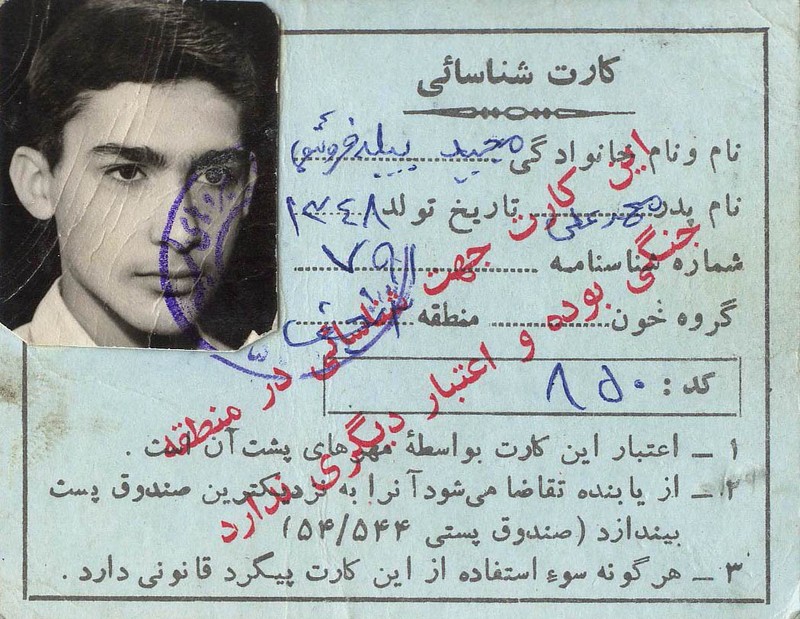 کارت شناسائی
نام و نام خانوادگی مجید پیله‌فروش
نام پدر محمدعلی تاریخ تولد ۱۳۴۸
شماره شناسنامه ۷۹
گروه خون منطقه
کد : ۸۵۰
۱ ـ اعتبار این کارت بواسطهٔ مهرهای پشت آن است .
۲ ـ از یابنده تقاضا می‌شود آنرا به نزدیکترین صندوق پست
بیندازد (صندوق پستی ۵۴/۵۴۴)
۳ ـ هرگونه سوء استفاده از این کارت پیگرد قانونی دارد .
این کارت جهت شناسائی در منطقه
جنگی بوده و اعتبار دیگری ندارد